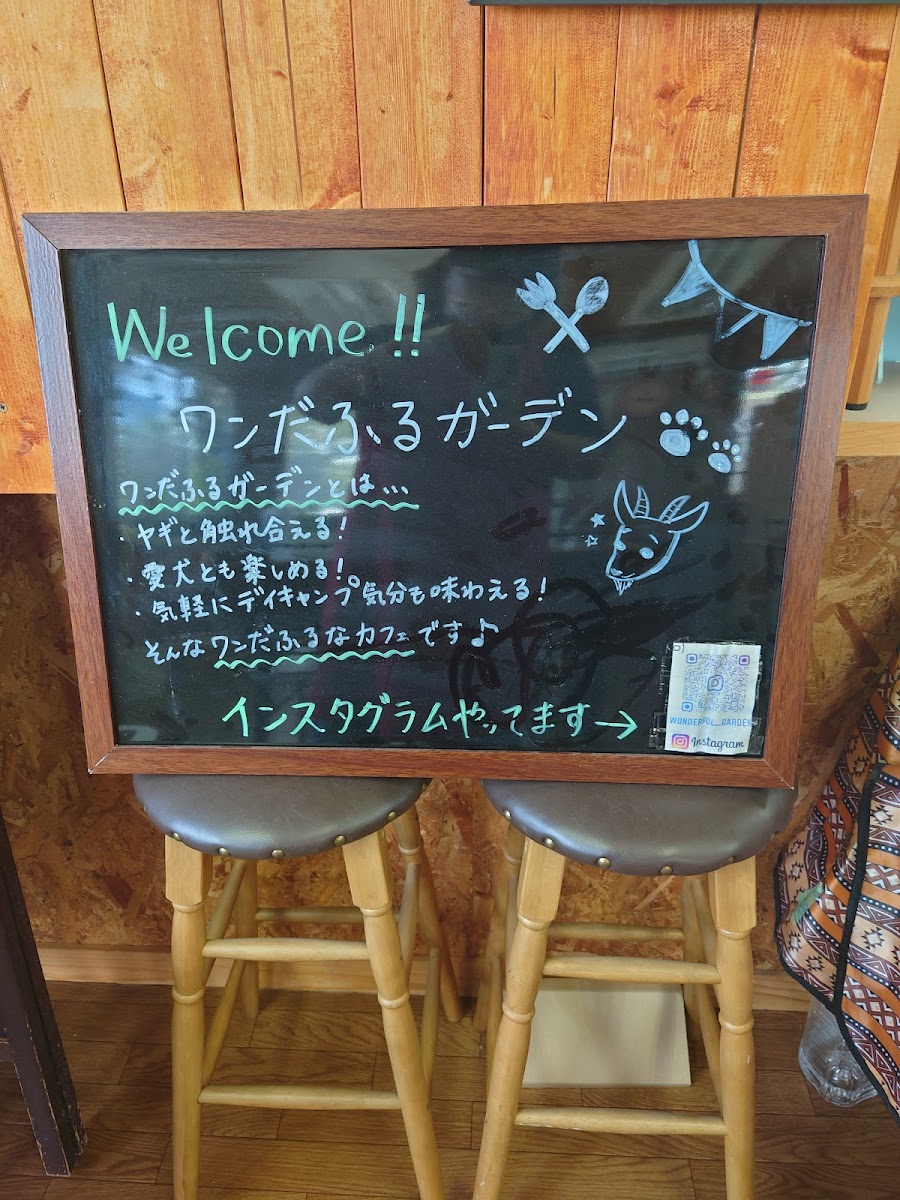 Welcome!!
ワンだふるガーデン
ワンだふるガーデンとは…
・ヤギと触れ合える!
・愛犬とも楽しめる!
・気軽にデイキャンプ気分も味わえる!
そんなワンだふるなカフェです♪
インスタグラムやってます→
WONDERFUL_GARDEN
Instagram